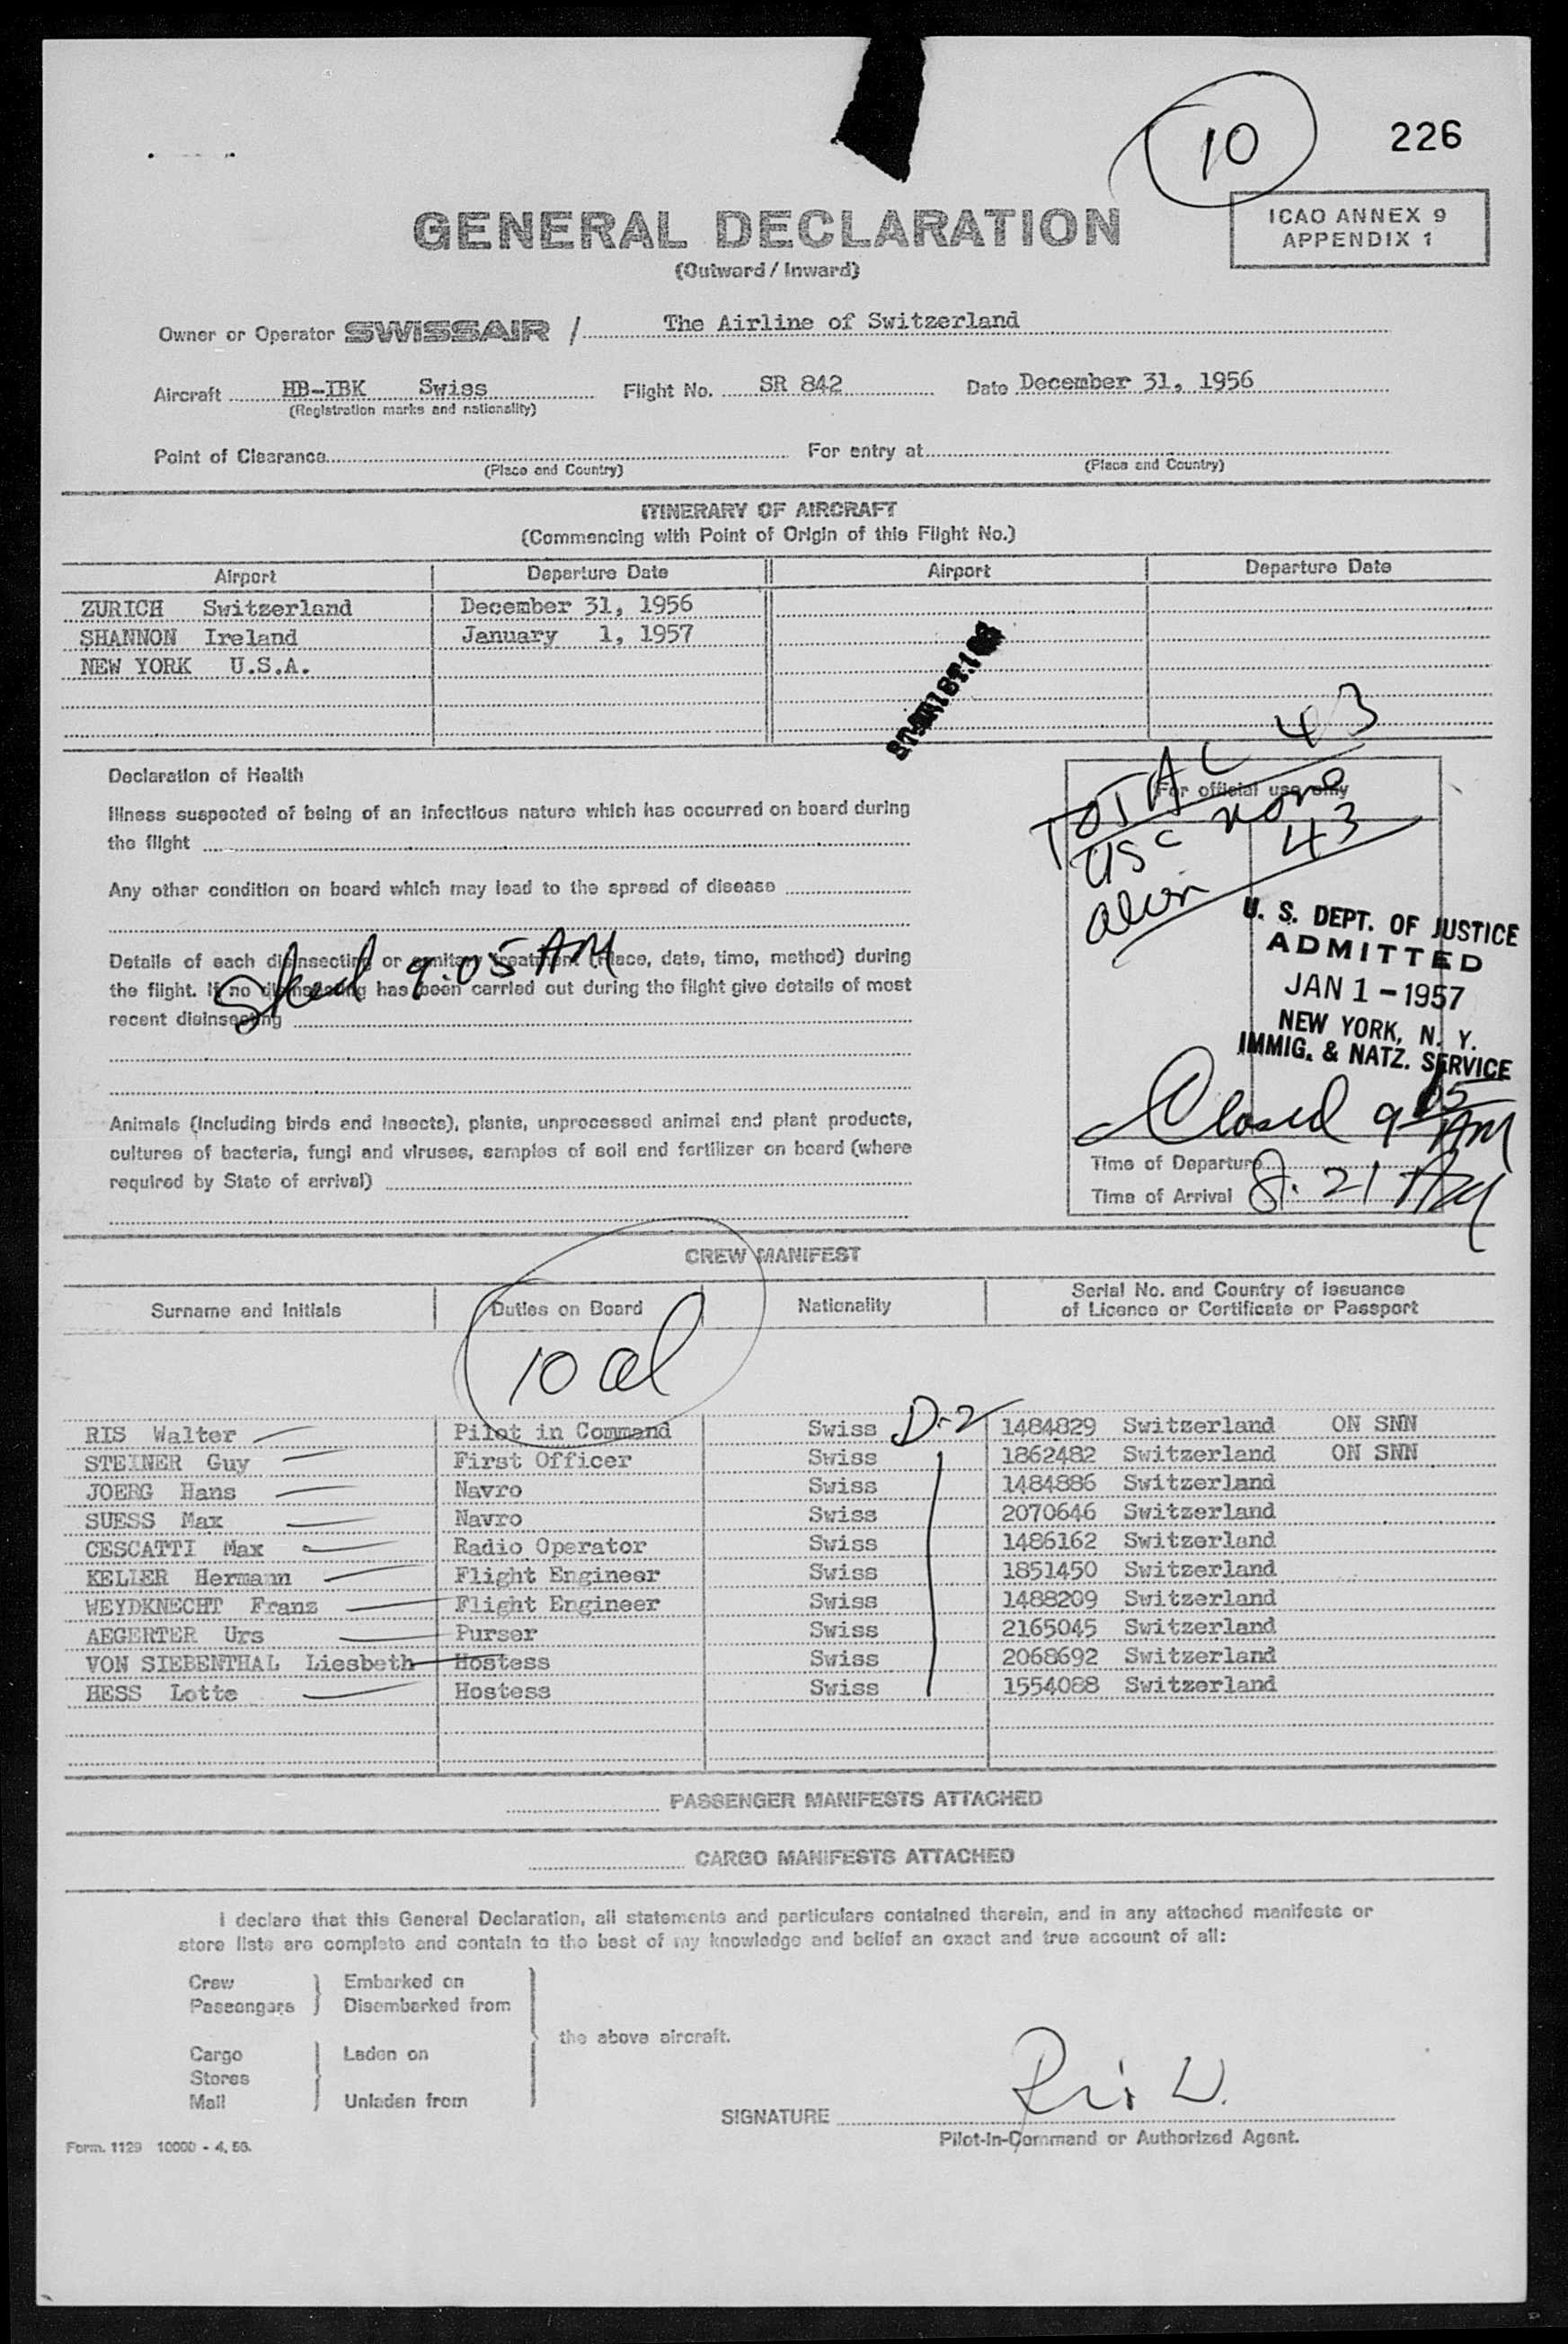 10
226
GENERAL DECLARATION
(Outward / Inward)
ICAO ANNEX 9
APPENDIX 1
Owner or Operator SWISSAIR / The Airline of Switzerland
Aircraft HB-IBK Swiss Flight No. SR 842 Date December 31, 1956
(Registration marks and nationality)
Point of Clearance For entry at
(Place and Country) (Place and Country)
ITINERARY OF AIRCRAFT
(Commencing with Point of Origin of this Flight No.)
Airport Departure Date Airport Departure Date
ZURICH Switzerland December 31, 1956
SHANNON Ireland January 1, 1957
NEW YORK U.S.A.
Declaration of Health
Illness suspected of being of an infectious nature which has occurred on board during
the flight
Any other condition on board which may lead to the spread of disease
Details of each disinsecting or sanitary treatment (place, date, time, method) during
the flight. If no disinsecting has been carried out during the flight give details of most
recent disinsecting
9:05 AM
Animals (including birds and insects), plants, unprocessed animal and plant products,
cultures of bacteria, fungi and viruses, samples of soil and fertilizer on board (where
required by State of arrival)
TOTAL 43
For official use only
USC none
alien 43
U. S. DEPT. OF JUSTICE
ADMITTED
JAN 1 - 1957
NEW YORK, N. Y.
IMMIG. & NATZ. SERVICE
Closed 9 15 AM
Time of Departure
Time of Arrival 8.21 AM
CREW MANIFEST
Surname and Initials Duties on Board Nationality Serial No. and Country of Issuance
of Licence or Certificate or Passport
10 al
RIS Walter Pilot in Command Swiss D-2 1484829 Switzerland ON SNN
STEINER Guy First Officer Swiss 1862482 Switzerland ON SNN
JOERG Hans Navro Swiss 1484886 Switzerland
SUESS Max Navro Swiss 2070646 Switzerland
CESCATTI Max Radio Operator Swiss 1486162 Switzerland
KELLER Hermann Flight Engineer Swiss 1851450 Switzerland
WEYDKNECHT Franz Flight Engineer Swiss 1488209 Switzerland
AEGERTER Urs Purser Swiss 2165045 Switzerland
VON SIEBENTHAL Liesbeth Hostess Swiss 2068692 Switzerland
HESS Lotte Hostess Swiss 1554088 Switzerland
PASSENGER MANIFESTS ATTACHED
CARGO MANIFESTS ATTACHED
I declare that this General Declaration, all statements and particulars contained therein, and in any attached manifests or
store lists are complete and contain to the best of my knowledge and belief an exact and true account of all:
Crew Embarked on
Passengers Disembarked from
the above aircraft.
Cargo Laden on
Stores
Mail Unladen from
SIGNATURE Ris W.
Pilot-in-Command or Authorized Agent.
Form. 1129 10000 - 4. 56.